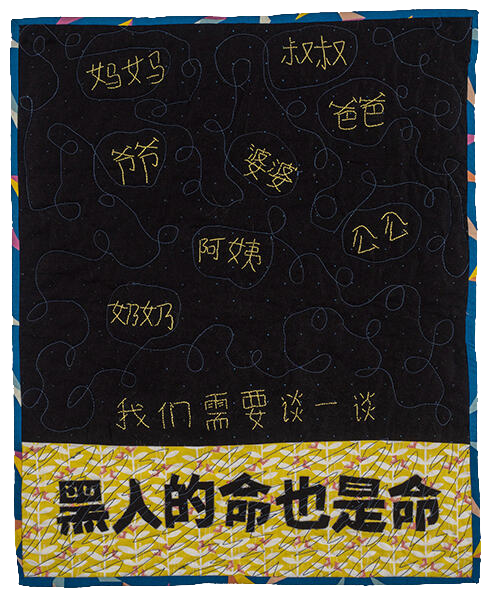 妈妈
叔叔
爸爸
爷爷
婆婆
公公
阿姨
奶奶
我们需要谈一谈
黑人的命也是命